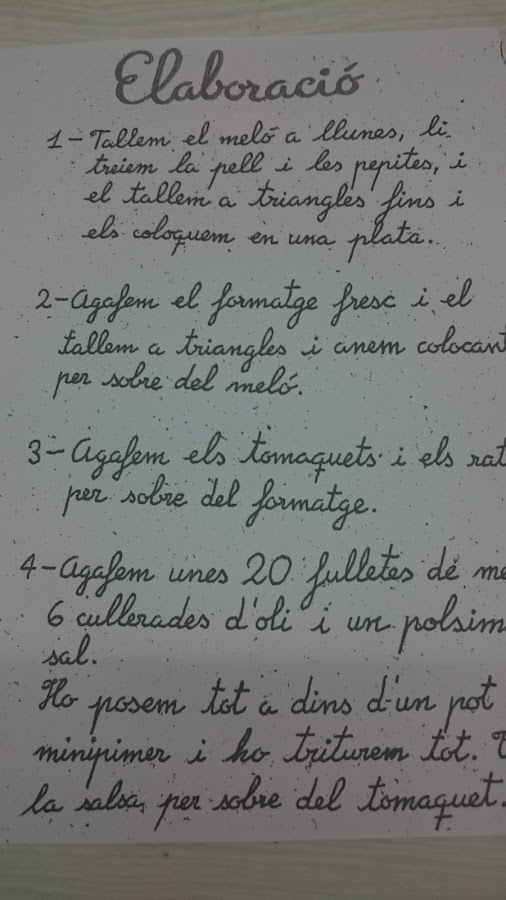 Elaboració
1 - Tallem el meló a llunes, li
treiem la pell i les pepites, i
el tallem a triangles fins i
els coloquem en una plata.
2 - Agafem el formatge fresc i el
tallem a triangles i anem colocant
per sobre del meló.
3 - Agafem els tomaquets i els rat
per sobre del formatge.
4 - Agafem unes 20 fulletes de me
6 cullerades d'oli i un polsim
sal.
Ho posem tot a dins d'un pot
minipimer i ho triturem tot. T
la salsa per sobre del tomaquet.